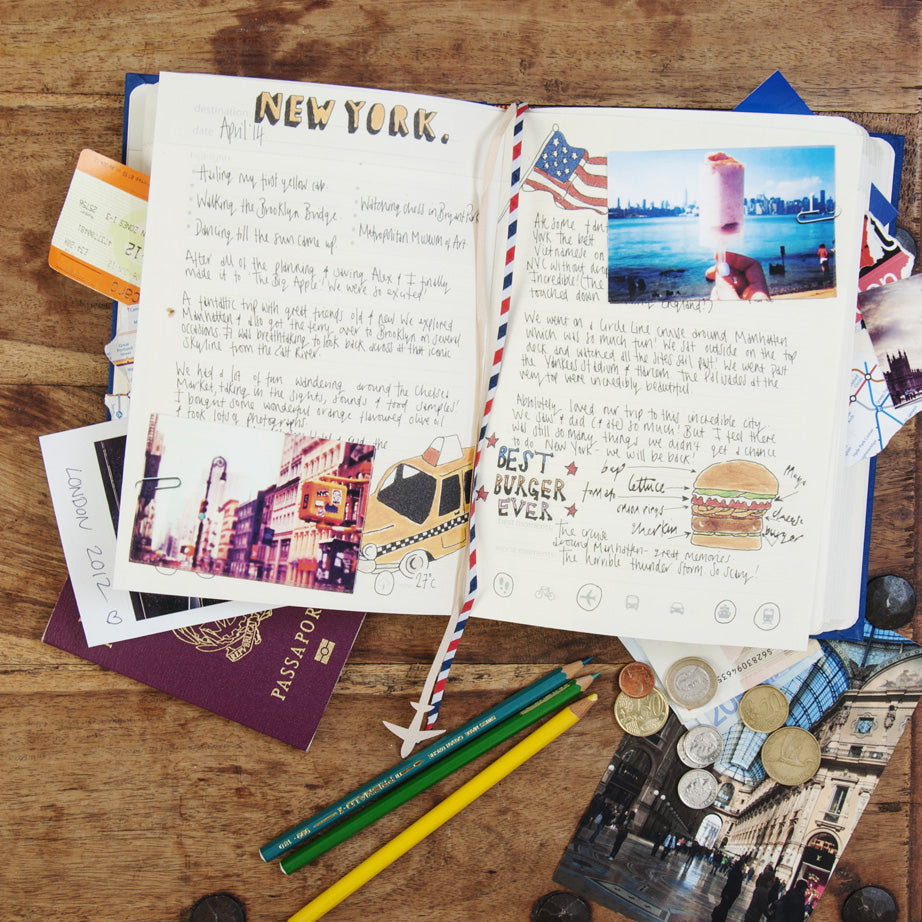 destination
NEW YORK.
date April '14
thoughts
Hailing my first yellow cab.
Walking the Brooklyn Bridge.
Watching chess in Bryant
Dancing till the sun came up.
Metropolitan Museum of Art
After all of the planning & saving, Alex & I finally
made it to The Big Apple! We were so excited
A fantastic trip with great friends old & new. We explored
Manhattan & also got the ferry over to Brooklyn on several
occasions. It was breathtaking to look back across at that iconic
skyline from the East River.
We had a lot of fun wandering around the Chelsea
Market, taking in the sights, sounds & food samples!
I bought some wonderful orange flavoured olive oil
& took lots of photographs.
27°c
York the best
Vietnamese
NYC without
Incredible! (The
touched down
in England!)
We went on a Circle Line cruise around Manhattan
which was so much fun! We sat outside on the top
deck and watched all the sites sail past. We went past
the Yankees Stadium & Harlem. The Palisades at the
very top were incredibly beautiful.
Absolutely loved our trip to this incredible city.
We saw & did (& ate) so much! But I feel there
was still so many things we didn't get a chance
to do. New York - we will be back!
BEST
BURGER
EVER
bap
tomato
lettuce
onion rings
gherkin
Mayo
cheese
burger
best moments
The cruise
around Manhattan - great memories.
worst moments
The horrible thunder storm. So scary!
LONDON 2012
PASSAPORTO